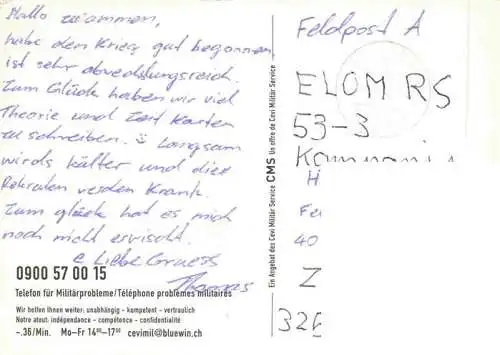 Hallo zusammen,
habe den Krieg gut begonnen,
ist sehr abwechslungsreich.
Zum Glück haben wir viel
Theorie und Zeit Karten
zu schreiben. Langsam
wirds kälter und die
Rekruten werden Krank.
Zum glück hat es mich
noch nicht erwischt.
e Liebe Gruess
Thomas
0900 57 00 15
Telefon für Militärprobleme/Téléphone problèmes militaires
Wir helfen Ihnen weiter: unabhängig - kompetent - vertraulich
Notre atout: indépendance - compétence - confidentialité
-.36/Min. Mo-Fr 14⁰⁰-17⁰⁰ cevimil@bluewin.ch
Ein Angebot des Cevi Militär Service CMS Un offre de Cevi Militär Service
Feldpost A
ELOM RS
53-3
H
Fe
40
Z